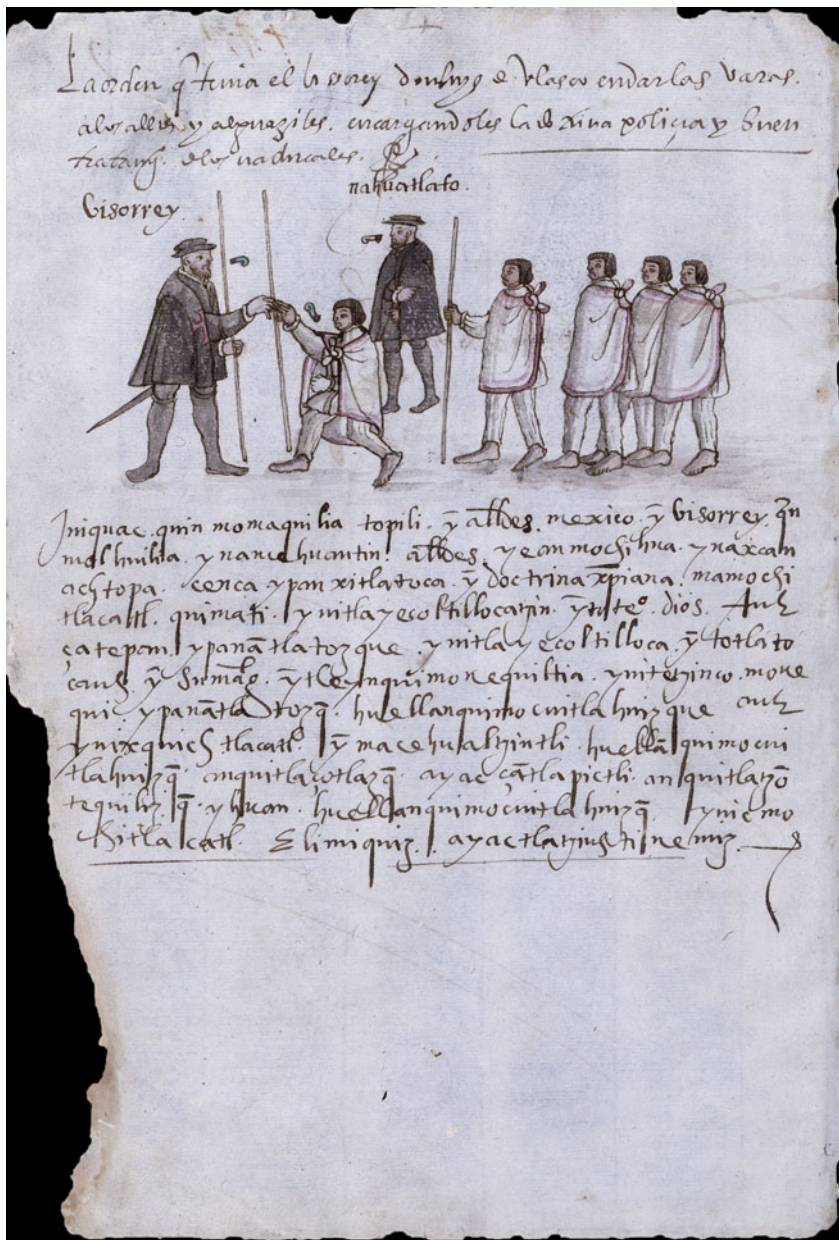 La orden q̃ tenia el bisorey don luys de Velasco en dar las varas.
a los alldes y alguaziles. encargandoles la dotrina poliçia y buen
tratamjº. de los naturales.
nahuatlato.
Visorrey.
Iniquac. quin momaquilia topili. ỹ allđes. mexico. ỹ Visorrey. qn
nalhuilia. ynamehuantin. allđes. yeanmochihua. ynaxcan
achtopa. cenca ypan xitlatoca. ỹ doctrina xp̃iana. mamochi
tlacatl. quimati. ynitlayecoltillocatzin. ỹtoteº. dios. Auh
çatepan. ypanãtlatozque. ynitlayecoltilloca. ỹ totlato
cauh ỹ Sumagᵈ. ỹtleynquimonequiltia. ynitezinco. mone
qui. ypanãtlatozq̃. huellanquimocuitlahuizque auh
ynixquich tlacatl. ỹ macehualtzintli. huellã quimocui
tlahuizq̃. anquitlaçotlazq̃. ayac çãtlapictli. an quitlatzõ
tequilizq̃. yhuan. huellanquimocuitlahuizq̃. ynic mo
chitlacatl. Elimiquiz. ayactlatziuhtinemiz.